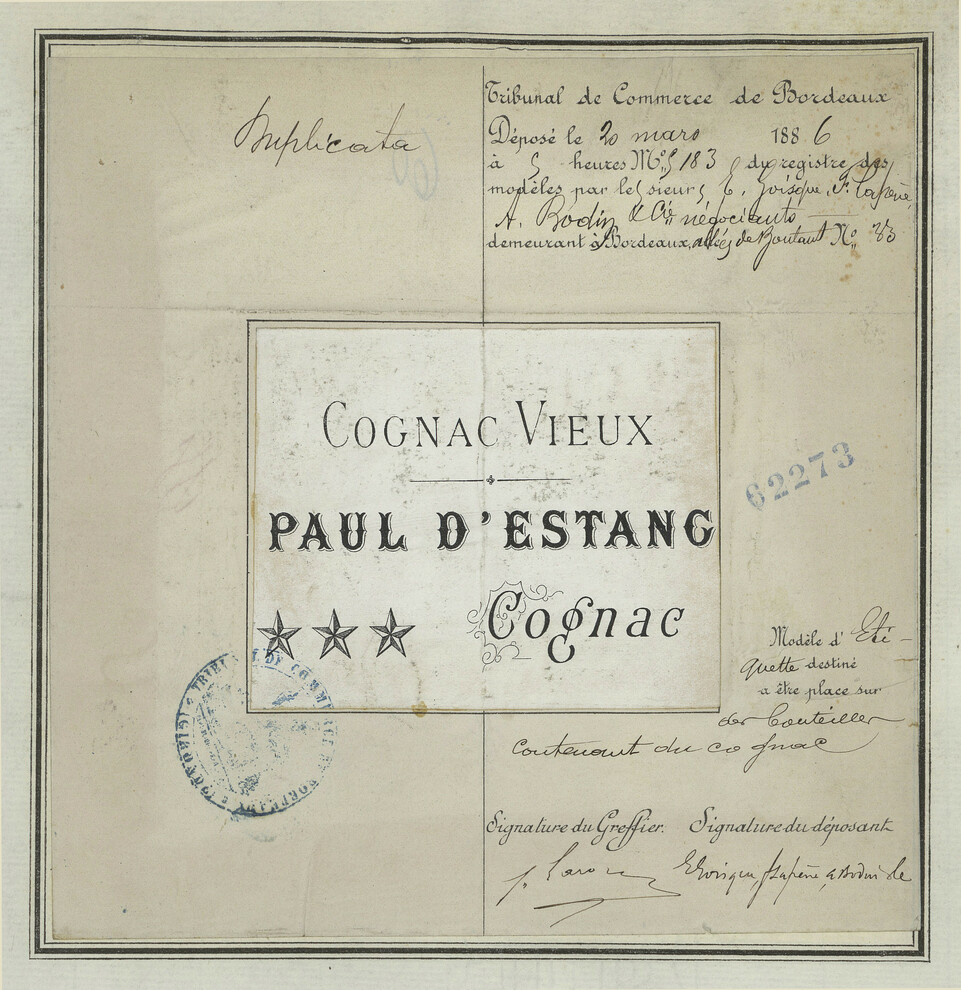 Duplicata
Tribunal de Commerce de Bordeaux
Déposé le 20 mars 1886
à 5 heures Mo. 5183 du registre des
modèles par les sieurs E. F. Lapène,
A. Bodin & Cie négociants
demeurant à Bordeaux, allées de Boutaut No. 83
COGNAC VIEUX
PAUL D'ESTANG
Cognac
62273
Modèle d' Eti-
quette destiné
a être place sur
des bouteilles
contenant du cognac
TRIBUNAL DE COMMERCE
Signature du Greffier. Signature du déposant